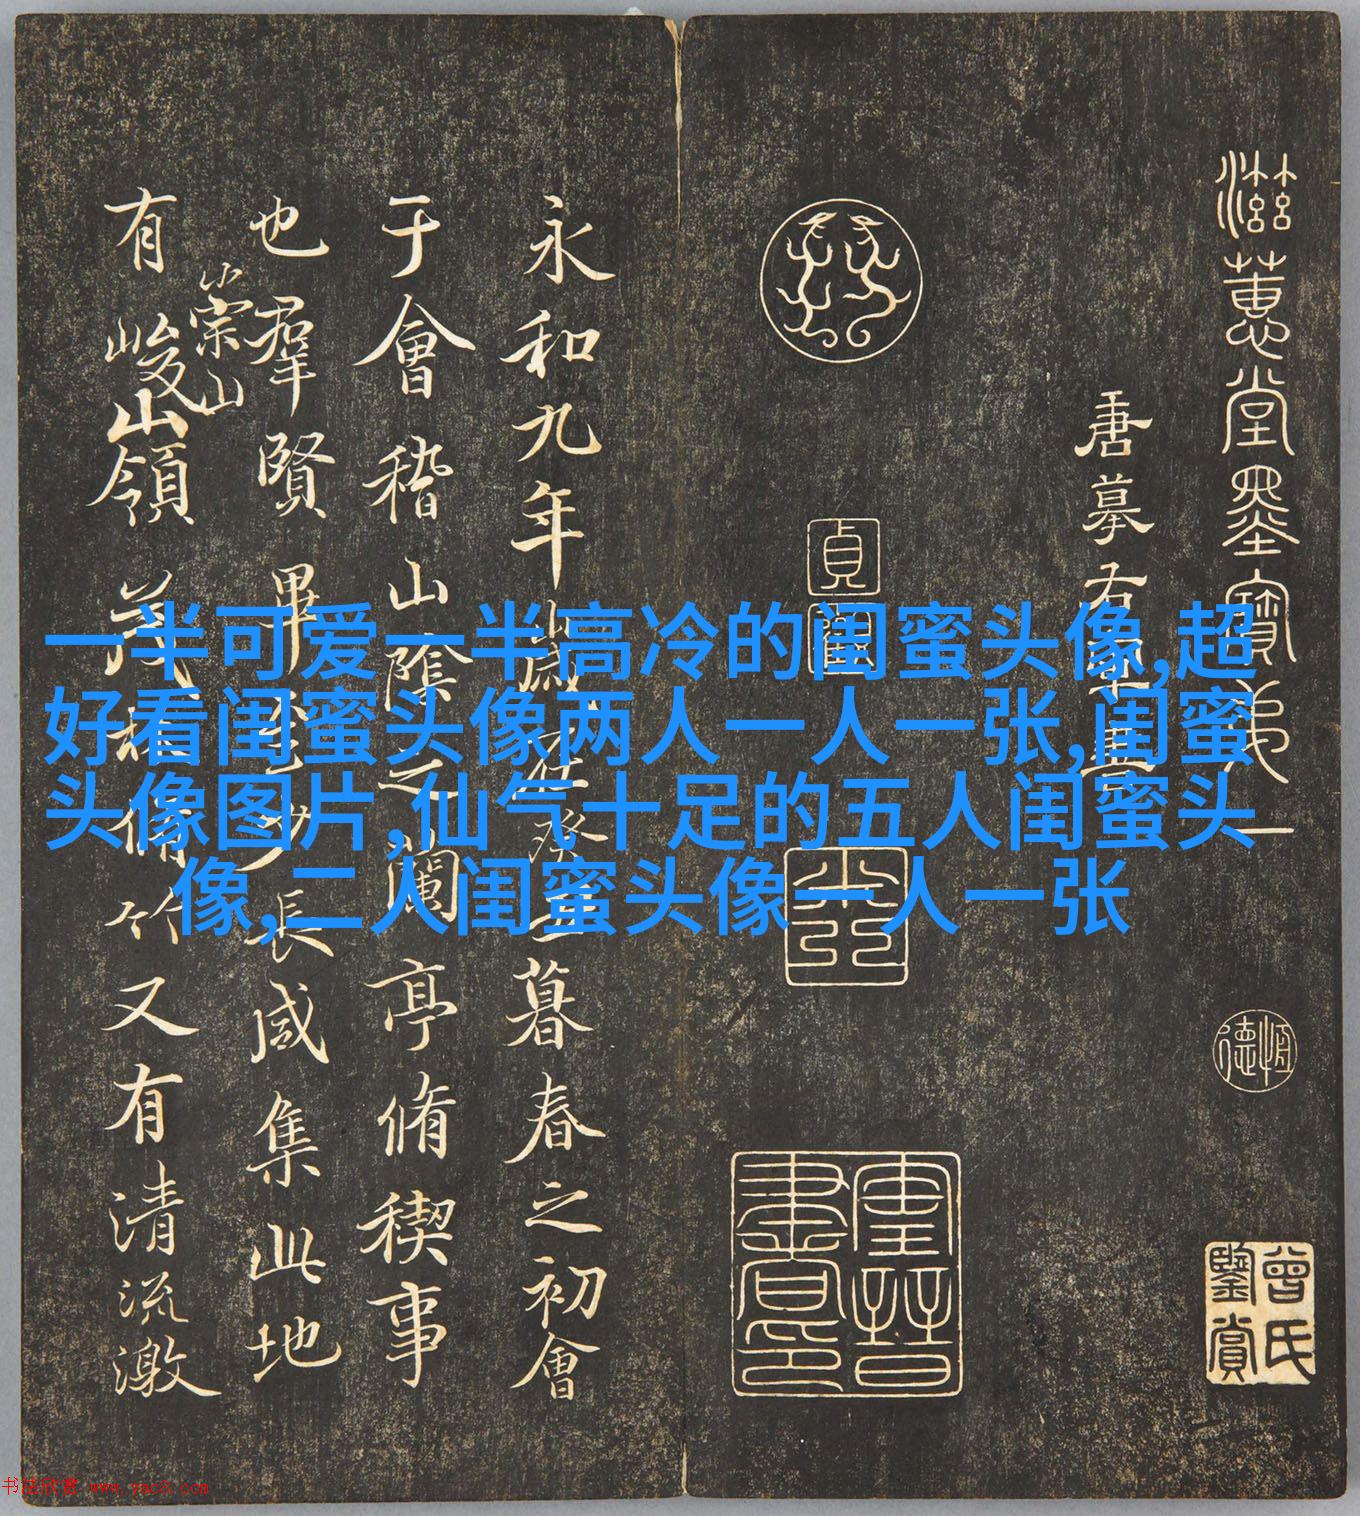 滋蕙堂墨寶弟一
唐摹右軍書
恒德
曾氏鑒賞
貞觀
永和九年歲在癸丑暮春之初會
于會稽山陰之蘭亭脩稧事
也羣賢畢至少長咸集此地
有崇山峻領茂林脩竹又有清流激
一半可爱一半高冷的闺蜜头像,超
好看闺蜜头像两人一人一张,闺蜜
头像图片,仙气十足的五人闺蜜头
像,二人闺蜜头像一人一张
书法欣赏 www.yac8.com